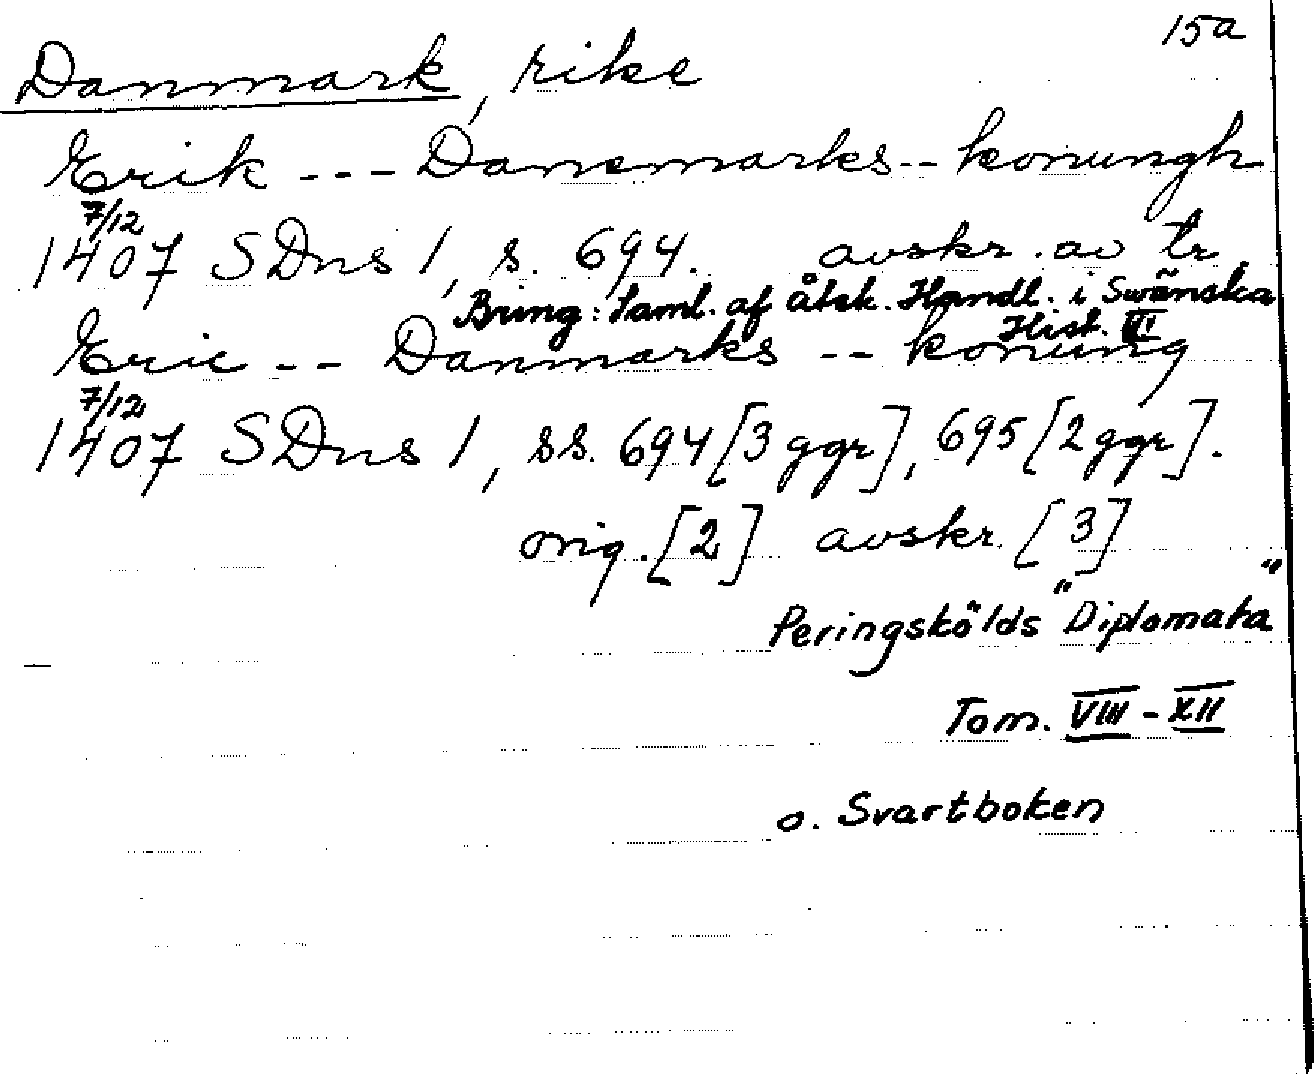 15a
Danmark, rike
Erik --- Danemarks -- konungh
7/12
1407 SDns 1, s. 694. avskr. av tr.
Bring: Saml. af åtsk. Handl. i Swänska
Hist. III
Eric -- Danmarks -- konung
7/12
1407 SDns 1, ss. 694 [3 ggr], 695 [2 ggr].
orig. [2] avskr. [3]
Peringskölds "Diplomata"
Tom. VIII - XII
o. Svartboken